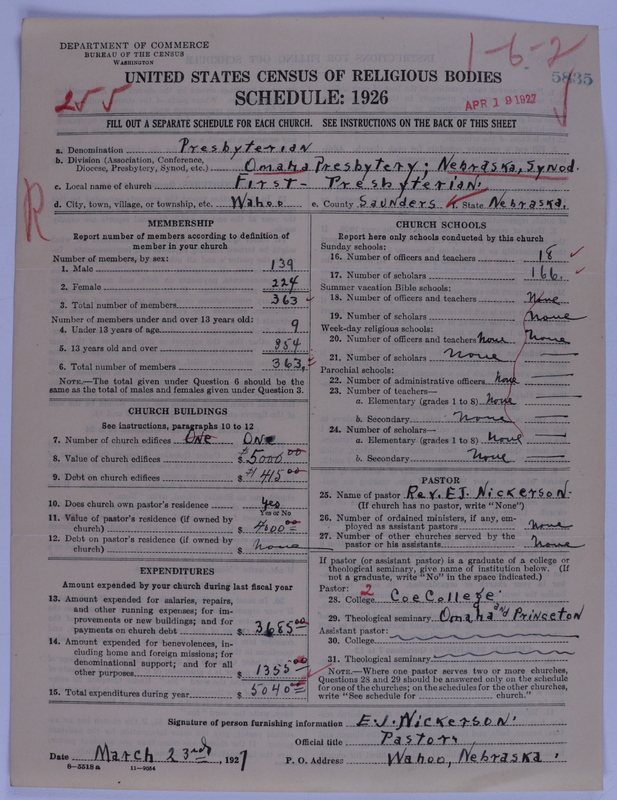 DEPARTMENT OF COMMERCE
BUREAU OF THE CENSUS
WASHINGTON
1-6-2
5835
UNITED STATES CENSUS OF RELIGIOUS BODIES
255
SCHEDULE: 1926
APR 19 1927
FILL OUT A SEPARATE SCHEDULE FOR EACH CHURCH. SEE INSTRUCTIONS ON THE BACK OF THIS SHEET
a. Denomination Presbyterian
b. Division (Association, Conference, Diocese, Presbytery, Synod, etc.) Omaha Presbytery; Nebraska, Synod.
c. Local name of church First - Presbyterian.
d. City, town, village, or township, etc. Wahoo e. County Saunders f. State Nebraska.
R
MEMBERSHIP
Report number of members according to definition of
member in your church
Number of members, by sex:
1. Male 139
2. Female 224
3. Total number of members 363
Number of members under and over 13 years old:
4. Under 13 years of age 9
5. 13 years old and over 354
6. Total number of members 363
NOTE.—The total given under Question 6 should be
same as the total of males and females given under Question 3.
CHURCH BUILDINGS
See instructions, paragraphs 10 to 12
7. Number of church edifices One One
8. Value of church edifices $ 5000 00
9. Debt on church edifices $ 1415 00
10. Does church own pastor's residence Yes
Yes or No
11. Value of pastor's residence (if owned by
church) $ 4000 00
12. Debt on pastor's residence (if owned by
church) $ none
EXPENDITURES
Amount expended by your church during last fiscal year
13. Amount expended for salaries, repairs,
and other running expenses; for im-
provements or new buildings; and for
payments on church debt $ 3685 00
14. Amount expended for benevolences, in-
cluding home and foreign missions; for
denominational support; and for all
other purposes $ 1355 00
15. Total expenditures during year $ 5040 00
CHURCH SCHOOLS
Report here only schools conducted by this church
Sunday schools:
16. Number of officers and teachers 18
17. Number of scholars 166.
Summer vacation Bible schools:
18. Number of officers and teachers None
19. Number of scholars None
Week-day religious schools:
20. Number of officers and teachers None None
21. Number of scholars None
Parochial schools:
22. Number of administrative officers None
23. Number of teachers—
a. Elementary (grades 1 to 8) None
b. Secondary None
24. Number of scholars—
a. Elementary (grades 1 to 8) None
b. Secondary None
PASTOR
25. Name of pastor Rev. E.J. Nickerson.
(If church has no pastor, write "None")
26. Number of ordained ministers, if any, em-
ployed as assistant pastors None
27. Number of other churches served by the
pastor or his assistants None
If pastor (or assistant pastor) is a graduate of a college or
theological seminary, give name of institution below. (If
not a graduate, write "No" in the space indicated.)
Pastor: 2
28. College Coe College.
29. Theological seminary Omaha and Princeton
Assistant pastor:
30. College
31. Theological seminary
NOTE.—Where one pastor serves two or more churches,
Questions 28 and 29 should be answered only on the schedule
for one of the churches; on the schedules for the other churches,
write "See schedule for church."
Signature of person furnishing information E.J. Nickerson.
Official title Pastor.
Date March 23rd, 1927 P. O. Address Wahoo, Nebraska.
8-5518 a 11-9054